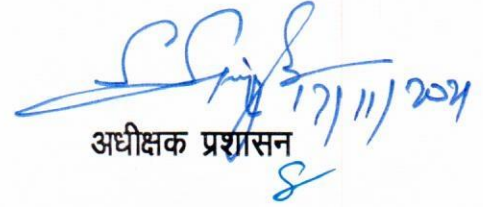 17/11/2021
अधीक्षक प्रशासन